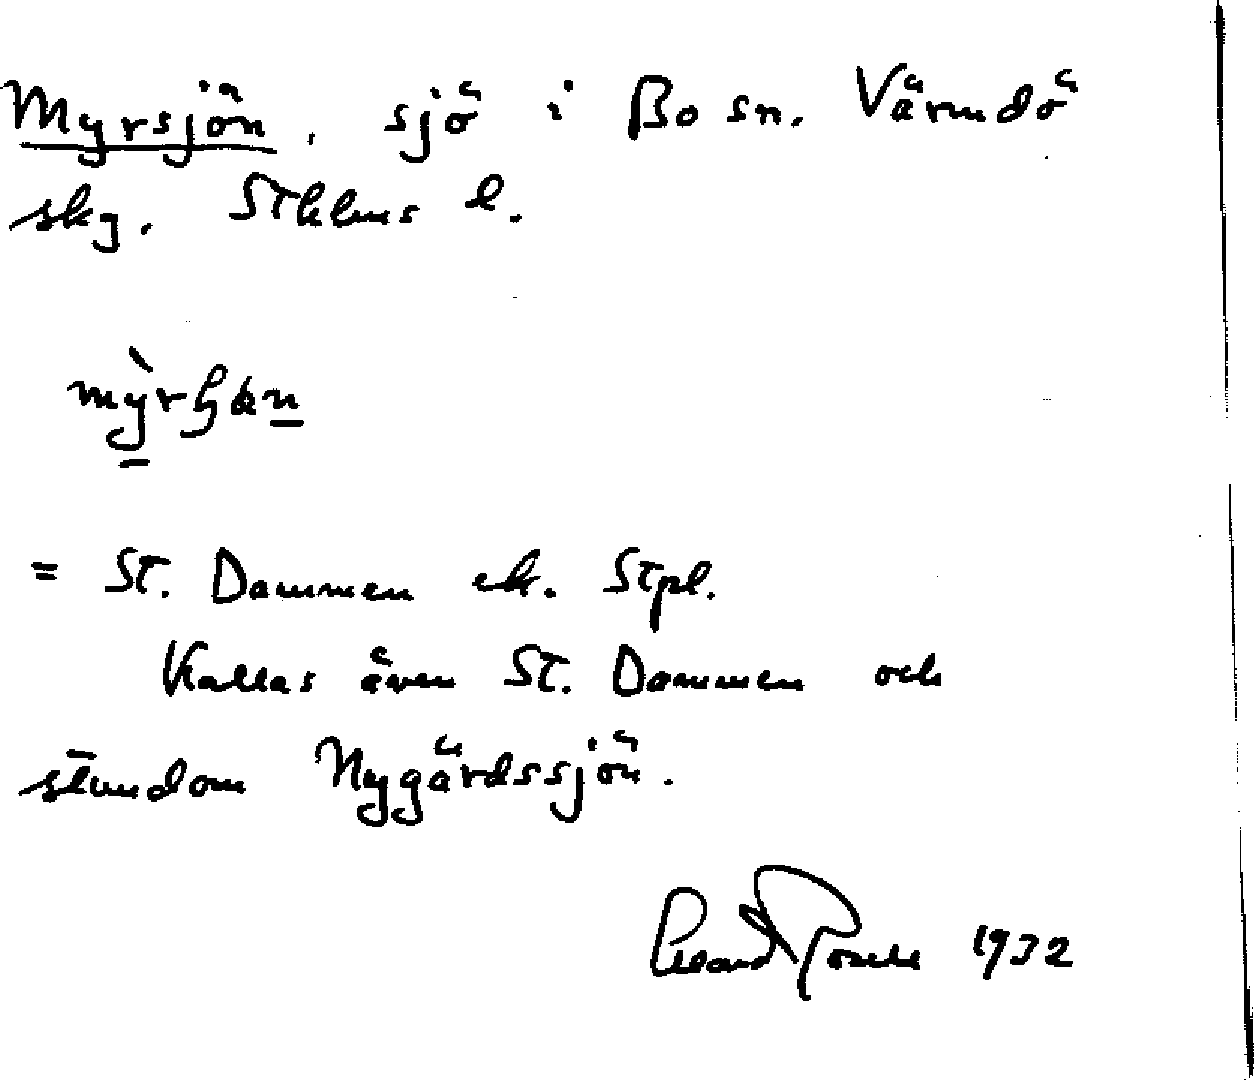 Myrsjön, sjö i Bo sn. Värmdö
skg. Sthlms l.
= St. Dammen ek. Stpl.
Kallas även St. Dammen och
stundom Nygårdssjön.
1932